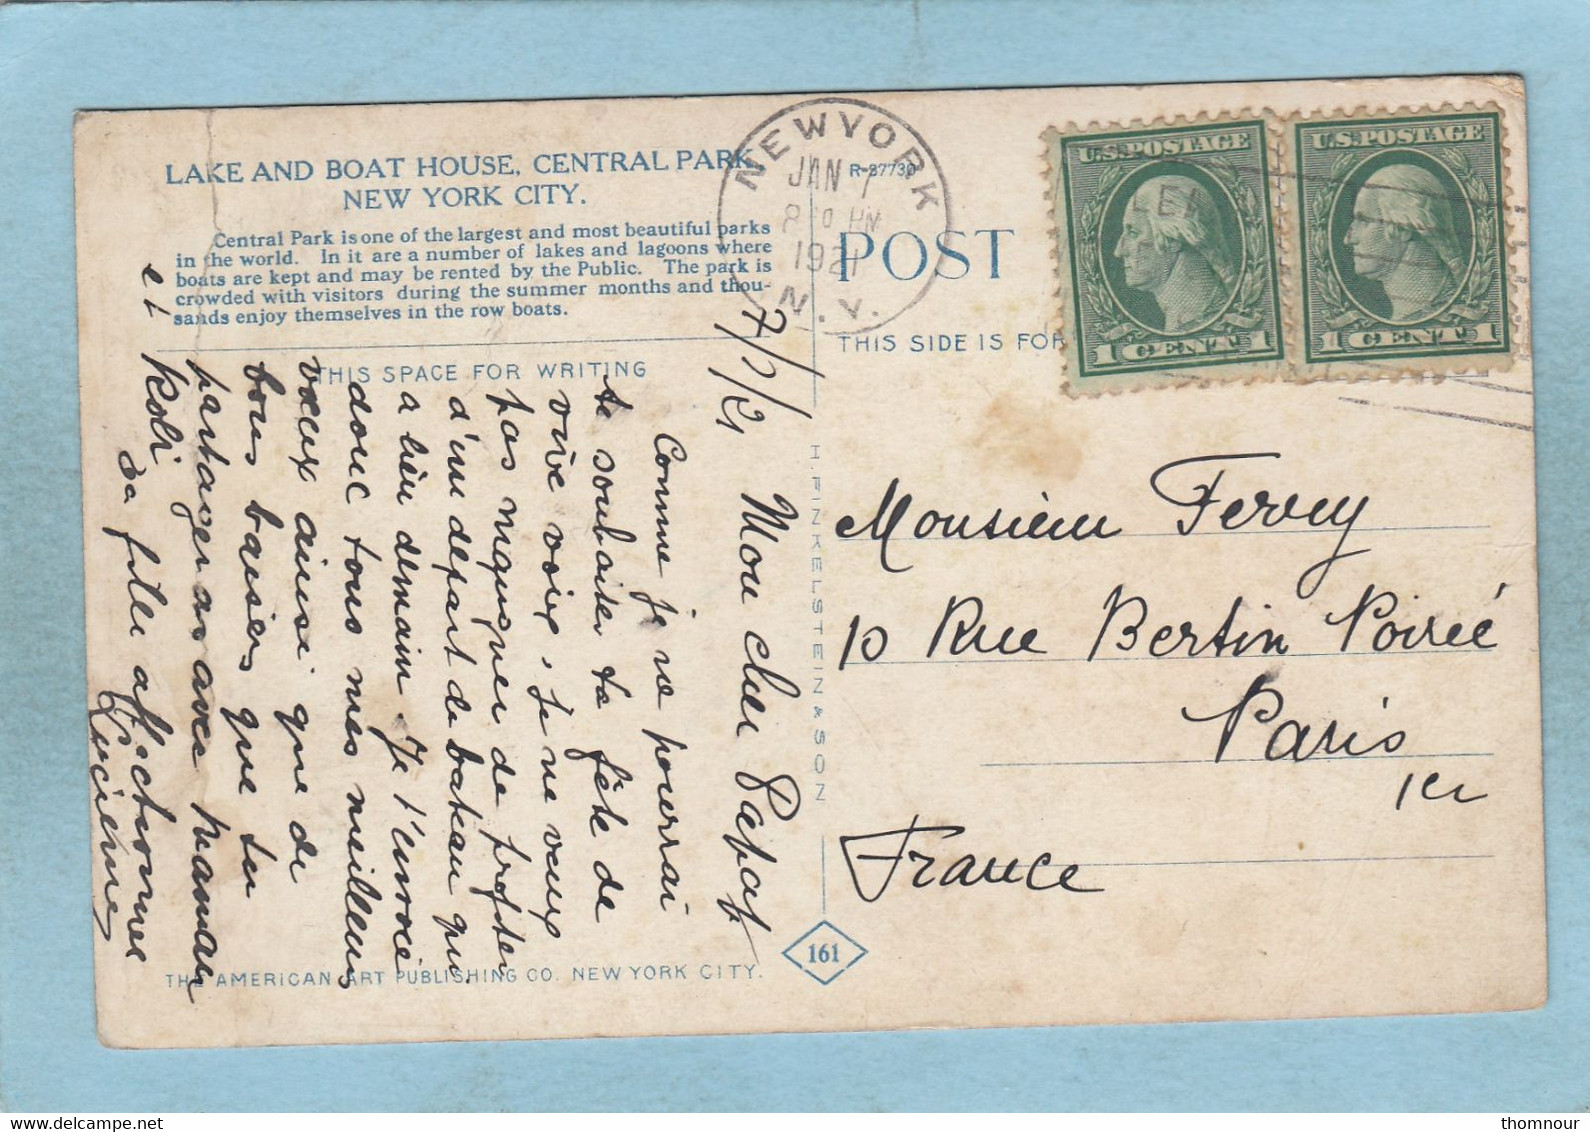 LAKE AND BOAT HOUSE, CENTRAL PARK
NEW YORK CITY.
Central Park is one of the largest and most beautiful parks
in the world. In it are a number of lakes and lagoons where
boats are kept and may be rented by the Public. The park is
crowded with visitors during the summer months and thou-
sands enjoy themselves in the row boats.
THIS SPACE FOR WRITING
7/1/21
Mon cher Papa
Comme je ne pourrai
te souhaiter ta fête de
vive voix, je ne veux
pas manquer de profiter
d'un départ de bateau qui
a lieu demain. Je t'envoie
donc tous mes meilleurs
vœux ainsi que de
bons baisers que tu
partageras avec Maman
et Koli
Ta fille affectionnée
Lucienne
THE AMERICAN ART PUBLISHING CO. NEW YORK CITY.
H. FINKELSTEIN & SON
161
NEW YORK
JAN 7
1921
N.Y.
R-37730
POST
THIS SIDE IS FOR
U.S. POSTAGE
1 CENT 1
U.S. POSTAGE
1 CENT 1
Monsieur Fervy
10 Rue Bertin Poirée
Paris
1er
France
thomnour